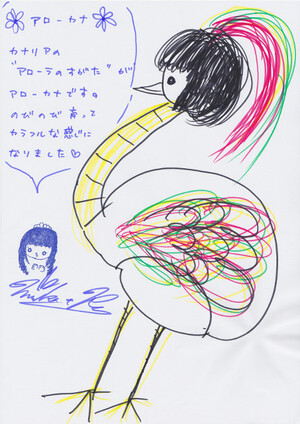 アローカナ
カナリアの
"アローラのすがた"が
アローカナです。
のびのび育って
カラフルな感じに
なりました♡